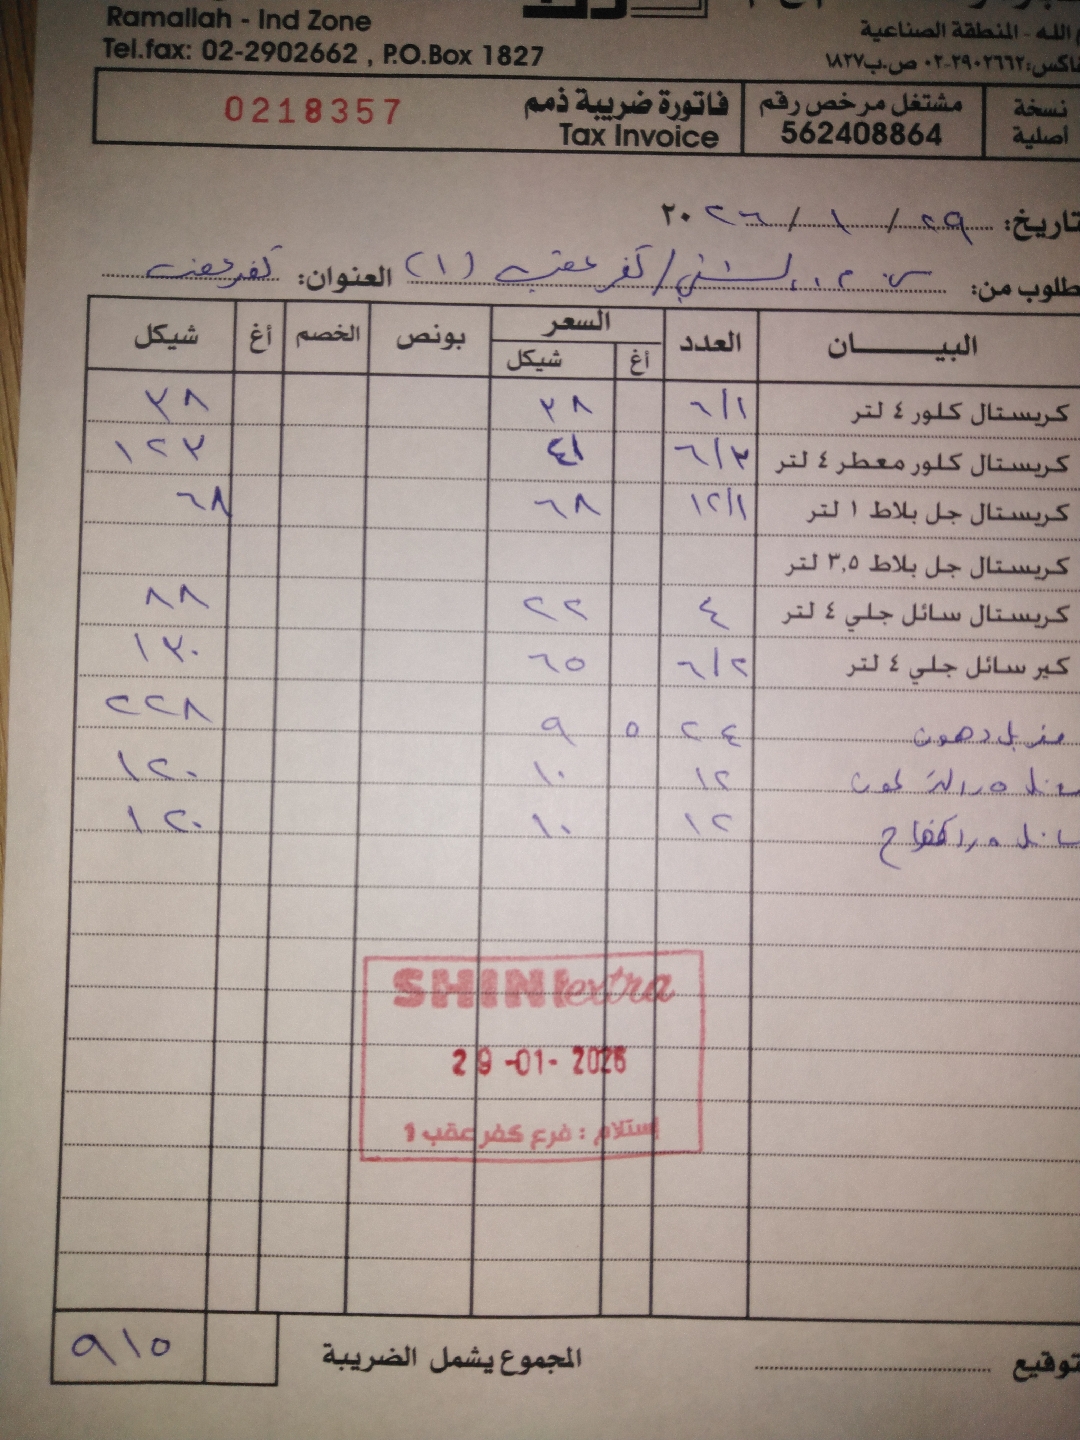 Ramallah - Ind Zone
Tel.fax: 02-2902662 , P.O.Box 1827
الله - المنطقة الصناعية
فاكس: ٢٩٠٢٦٦٢-٠٢ ص.ب ١٨٢٧
نسخة أصلية
مشتغل مرخص رقم
562408864
فاتورة ضريبة ذمم
Tax Invoice
0218357
تاريخ: ٢٩ / ١ / ٢٠٢٦
طلوب من: كفر عقب (١) العنوان: كفر عقب
البيـــــان العدد السعر بونص الخصم أغ شيكل
أغ شيكل
كريستال كلور ٤ لتر ٦/١ ٣٨ ٣٨
كريستال كلور معطر ٤ لتر ٦/٣ ٤١ ١٢٣
كريستال جل بلاط ١ لتر ١٢/١ ٦٨ ٦٨
كريستال جل بلاط ٣,٥ لتر
كريستال سائل جلي ٤ لتر ٤ ٢٢ ٨٨
كير سائل جلي ٤ لتر ٦/٢ ٦٥ ١٣٠
دهون ٢٤ ٥ ٩ ٢٢٨
١٢ ١٠ ١٢٠
١٢ ١٠ ١٢٠
SHINI extra
29-01-2026
إستلام : فرع كفر عقب 1
توقيع
المجموع يشمل الضريبة ٩١٥